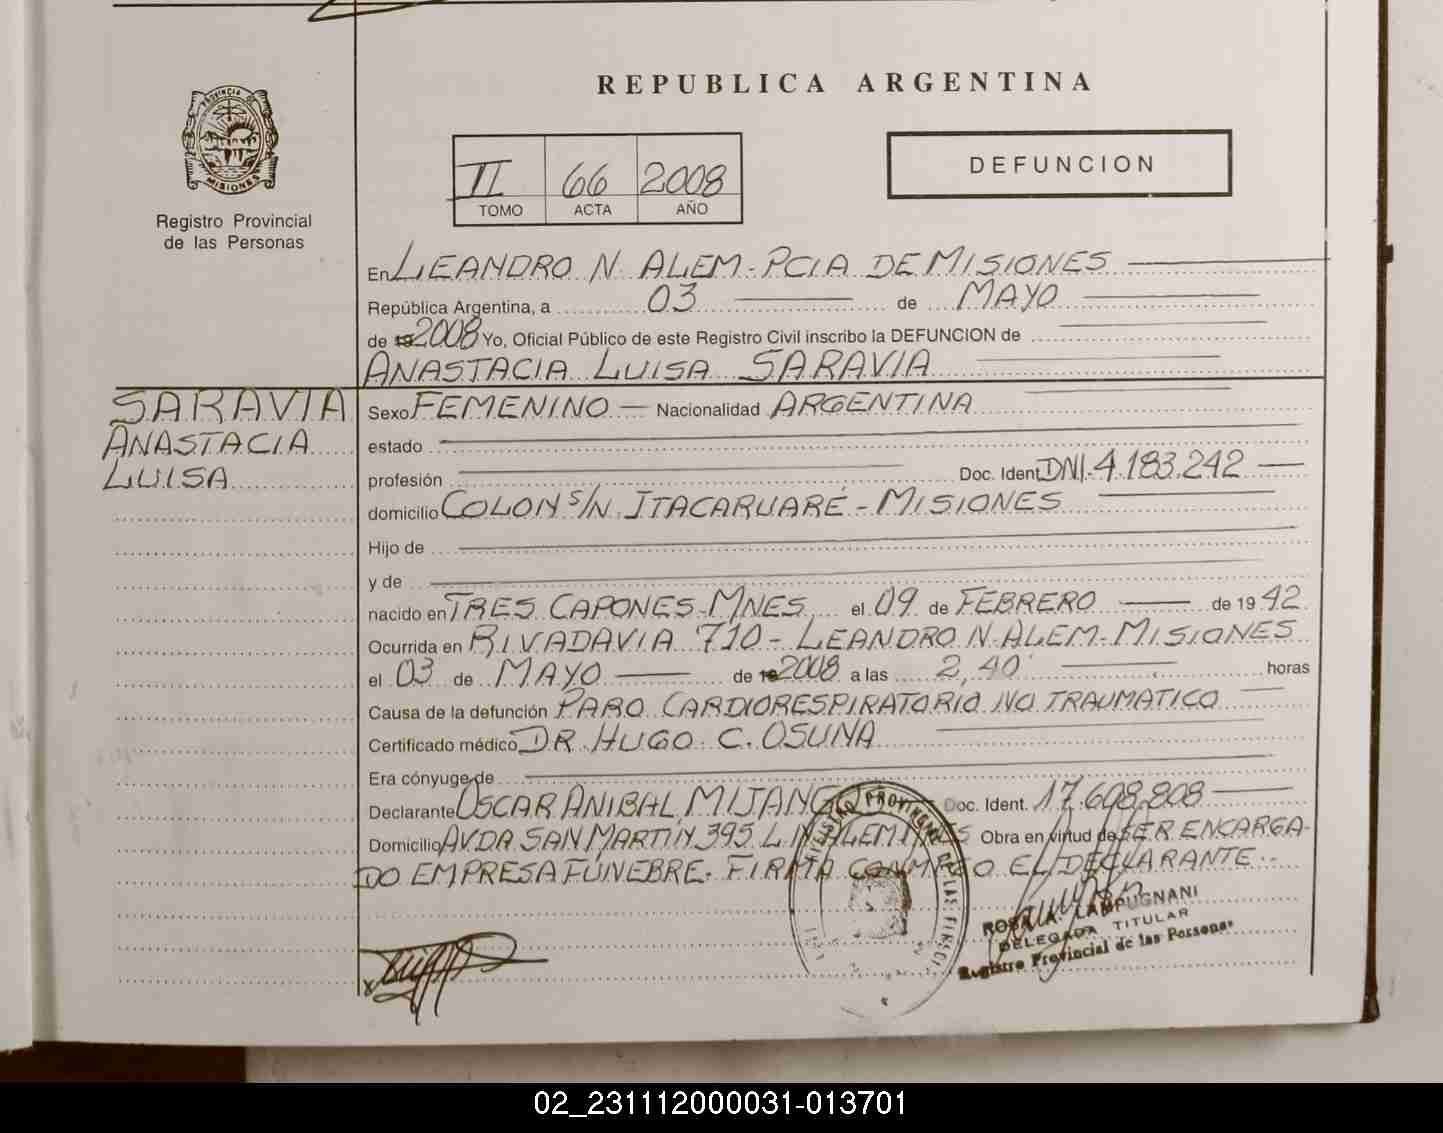 REPUBLICA ARGENTINA
PROVINCIA DE
MISIONES
Registro Provincial
de las Personas
II 66 2008
TOMO ACTA AÑO
DEFUNCION
En LEANDRO N. ALEM - PCIA DE MISIONES
República Argentina, a 03 de MAYO
de 19 2008 Yo, Oficial Público de este Registro Civil inscribo la DEFUNCION de
ANASTACIA LUISA SARAVIA
SARAVIA
ANASTACIA
LUISA
Sexo FEMENINO Nacionalidad ARGENTINA
estado
profesión Doc. Ident. DNI. 4.183.242
domicilio COLON S/N ITACARUARÉ - MISIONES
Hijo de
y de
nacido en TRES CAPONES - MNES el 09 de FEBRERO de 19 42
Ocurrida en RIVADAVIA 710 - LEANDRO N. ALEM - MISIONES
el 03 de MAYO de 19 2008 a las 2,40 horas
Causa de la defunción PARO CARDIORESPIRATORIO NO TRAUMATICO
Certificado médico DR. HUGO C. OSUNA
Era cónyuge de
Declarante OSCAR ANIBAL Doc. Ident. 17.608.808
Domicilio AVDA SAN MARTIN 395 L. N. ALEM Obra en virtud de SER ENCARGA-
DO EMPRESA FÚNEBRE. FIRMA CONMIGO EL DECLARANTE.-
ROSA A. LAMPUGNANI
DELEGADA TITULAR
Registro Provincial de las Personas
02_231112000031-013701